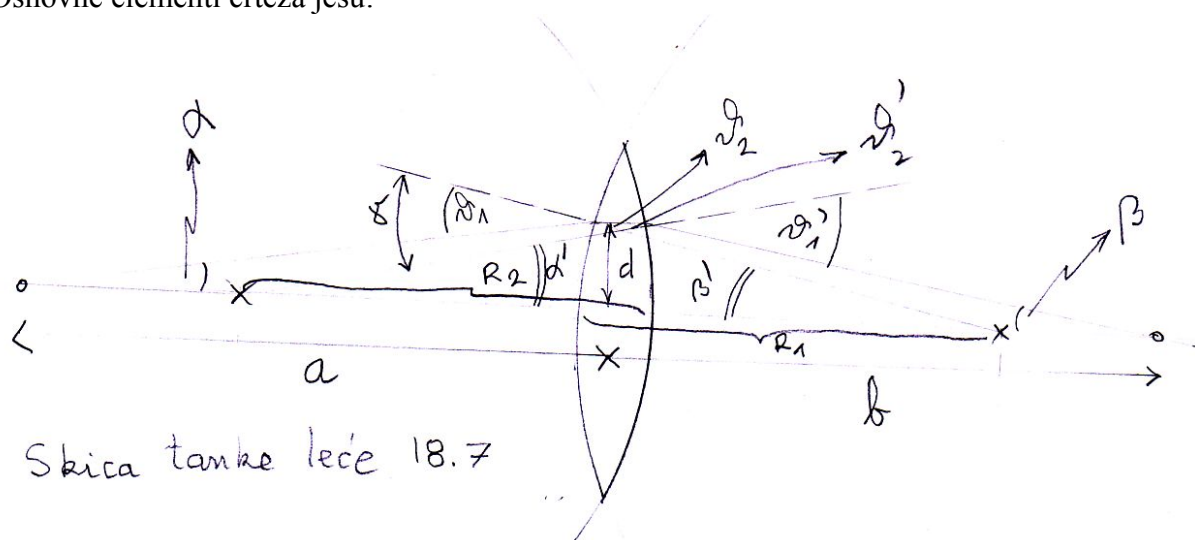 Osnovne elementi crteža jesu:
α
ϑ₂
ϑ₂'
γ
ϑ₁
ϑ₁'
β
R₂
α'
d
β'
R₁
a
b
Skica tanke leće 18.7